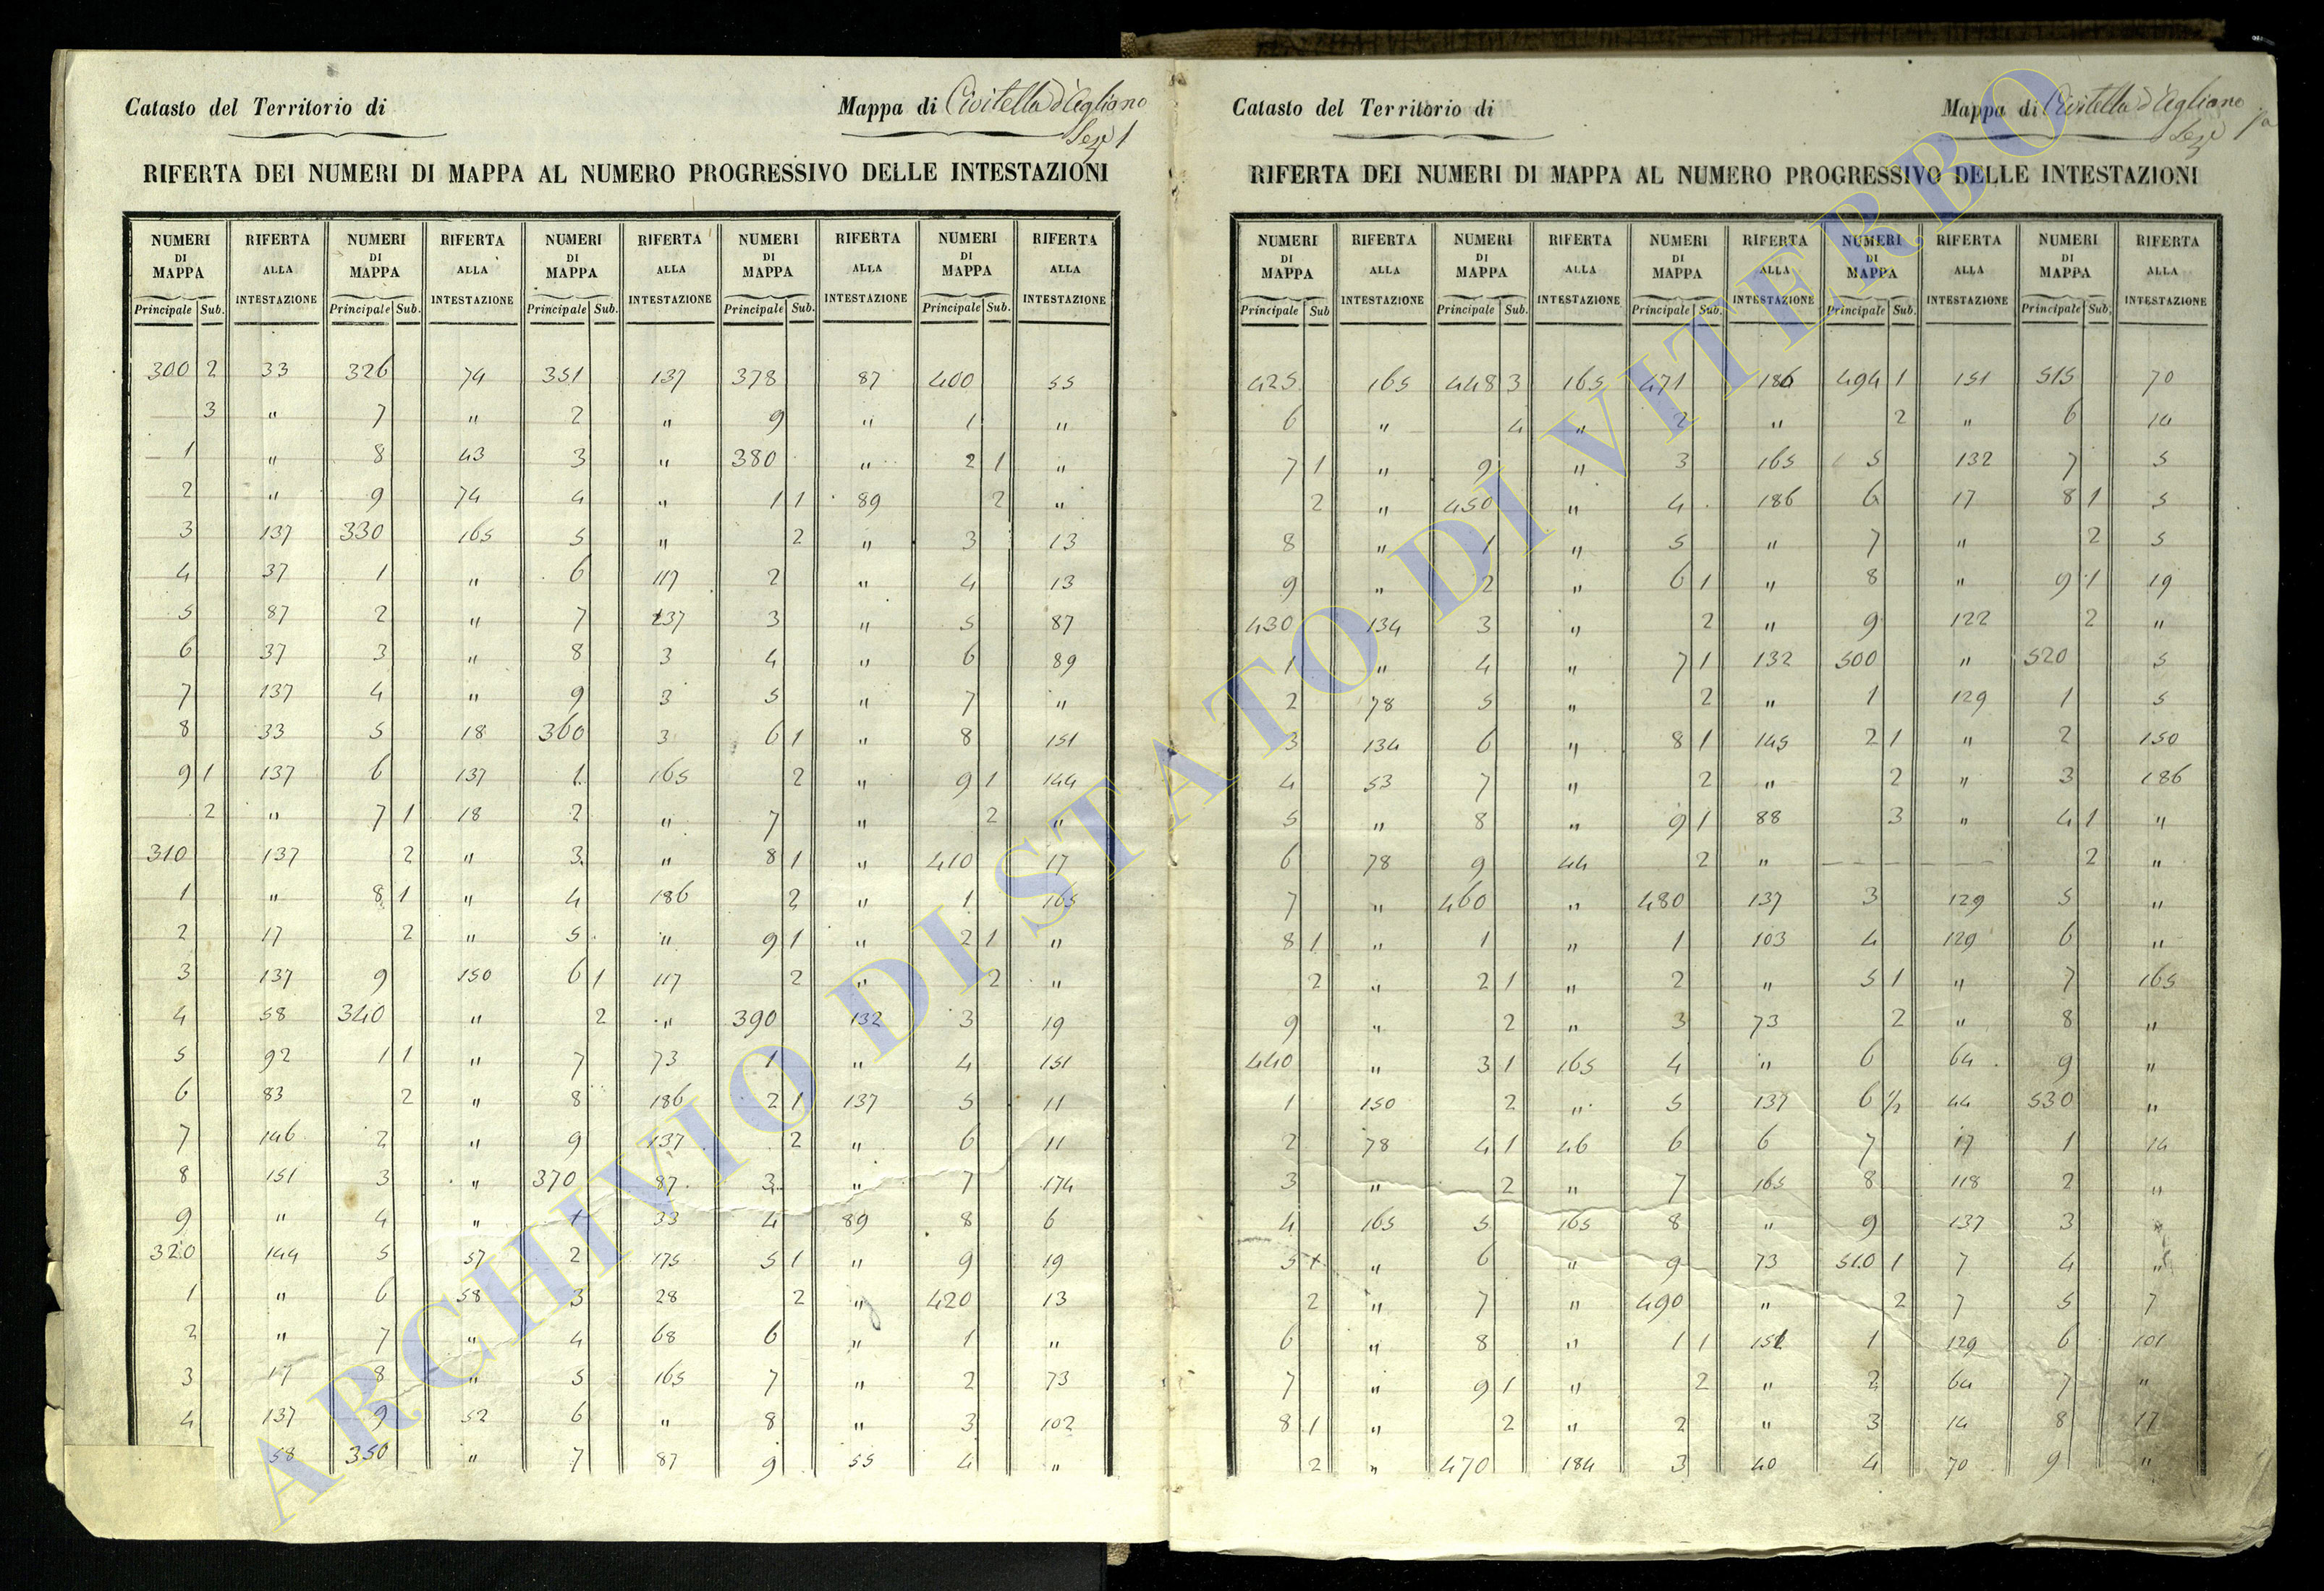 Catasto del Territorio di Mappa di Civitella d'Agliano
Sez. 1
RIFERTA DEI NUMERI DI MAPPA AL NUMERO PROGRESSIVO DELLE INTESTAZIONI
NUMERI RIFERTA NUMERI RIFERTA NUMERI RIFERTA NUMERI RIFERTA NUMERI RIFERTA
DI DI DI DI DI
MAPPA ALLA MAPPA ALLA MAPPA ALLA MAPPA ALLA MAPPA ALLA
INTESTAZIONE INTESTAZIONE INTESTAZIONE INTESTAZIONE INTESTAZIONE
Principale Sub. Principale Sub. Principale Sub. Principale Sub. Principale Sub.
300 2 33 326 74 351 137 378 87 400 55
3 " 7 " 2 " 9 " 1 "
1 " 8 43 3 " 380 " 2 1 "
2 " 9 74 4 " 1 1 89 2 "
3 137 330 165 5 " 2 " 3 13
4 37 1 " 6 117 2 " 4 13
5 87 2 " 7 137 3 " 5 87
6 37 3 " 8 3 4 " 6 89
7 137 4 " 9 3 5 " 7 "
8 33 5 18 360 3 6 1 " 8 151
9 1 137 6 137 1 165 2 " 9 1 144
2 " 7 1 18 2 " 7 " 2 "
310 137 2 " 3 " 8 1 " 410 17
1 " 8 1 " 4 186 2 " 1 165
2 17 2 " 5 " 9 1 " 2 1 "
3 137 9 150 6 1 117 2 " 2 "
4 58 340 " 2 " 390 132 3 19
5 92 1 1 " 7 73 1 " 4 151
6 83 2 " 8 186 2 1 137 5 11
7 146 2 " 9 137 2 " 6 11
8 151 3 " 370 87 3 " 7 174
9 " 4 " 1 33 4 89 8 6
320 144 5 57 2 175 5 1 " 9 19
1 " 6 58 3 28 2 " 420 13
2 " 7 " 4 68 6 " 1 "
3 17 8 " 5 165 7 " 2 73
4 137 9 52 6 " 8 " 3 102
58 350 " 7 87 9 55 4 "
Catasto del Territorio di Mappa di Civitella d'Agliano
Sez. 1a
RIFERTA DEI NUMERI DI MAPPA AL NUMERO PROGRESSIVO DELLE INTESTAZIONI
NUMERI RIFERTA NUMERI RIFERTA NUMERI RIFERTA NUMERI RIFERTA NUMERI RIFERTA
DI DI DI DI DI
MAPPA ALLA MAPPA ALLA MAPPA ALLA MAPPA ALLA MAPPA ALLA
INTESTAZIONE INTESTAZIONE INTESTAZIONE INTESTAZIONE INTESTAZIONE
Principale Sub Principale Sub. Principale Sub. Principale Sub. Principale Sub.
425 165 448 3 165 471 186 494 1 151 515 70
6 " 4 " 2 " 2 " 6 14
7 1 " 9 " 3 165 5 132 7 5
2 " 450 " 4 186 6 17 8 1 5
8 " 1 " 5 " 7 " 2 5
9 " 2 " 6 1 " 8 " 9 1 19
430 134 3 " 2 " 9 122 2 "
1 " 4 " 7 1 132 500 " 520 5
2 78 5 " 2 " 1 129 1 5
3 134 6 " 8 1 145 2 1 " 2 150
4 53 7 " 2 " 2 " 3 186
5 " 8 " 9 1 88 3 " 4 1 "
6 78 9 44 2 " 2 "
7 " 460 " 480 137 3 129 5 "
8 1 " 1 " 1 103 4 129 6 "
2 " 2 1 " 2 " 5 1 " 7 165
9 " 2 " 3 73 2 " 8 "
440 " 3 1 165 4 " 6 64 9 "
1 150 2 " 5 137 6 ½ 44 530 "
2 78 4 1 46 6 6 7 17 1 14
3 " 2 " 7 165 8 118 2 "
4 165 5 165 8 " 9 137 3 "
5 1 " 6 " 9 73 510 1 7 4 "
2 " 7 " 490 " 2 7 5 7
6 " 8 " 1 1 151 1 129 6 101
7 " 9 1 " 2 " 2 64 7 "
8 1 " 2 " 2 " 3 14 8 17
2 " 470 184 3 40 4 70 9 "
ARCHIVIO DI STATO DI VITERBO